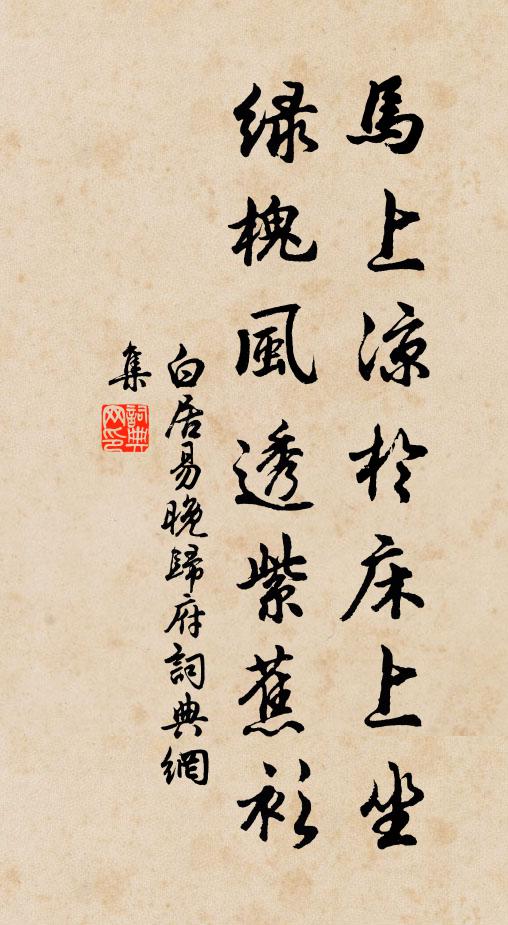 馬上涼於床上坐
緑槐風透紫蕉衫
白居易晚歸府詞典網
集
詞典
网印